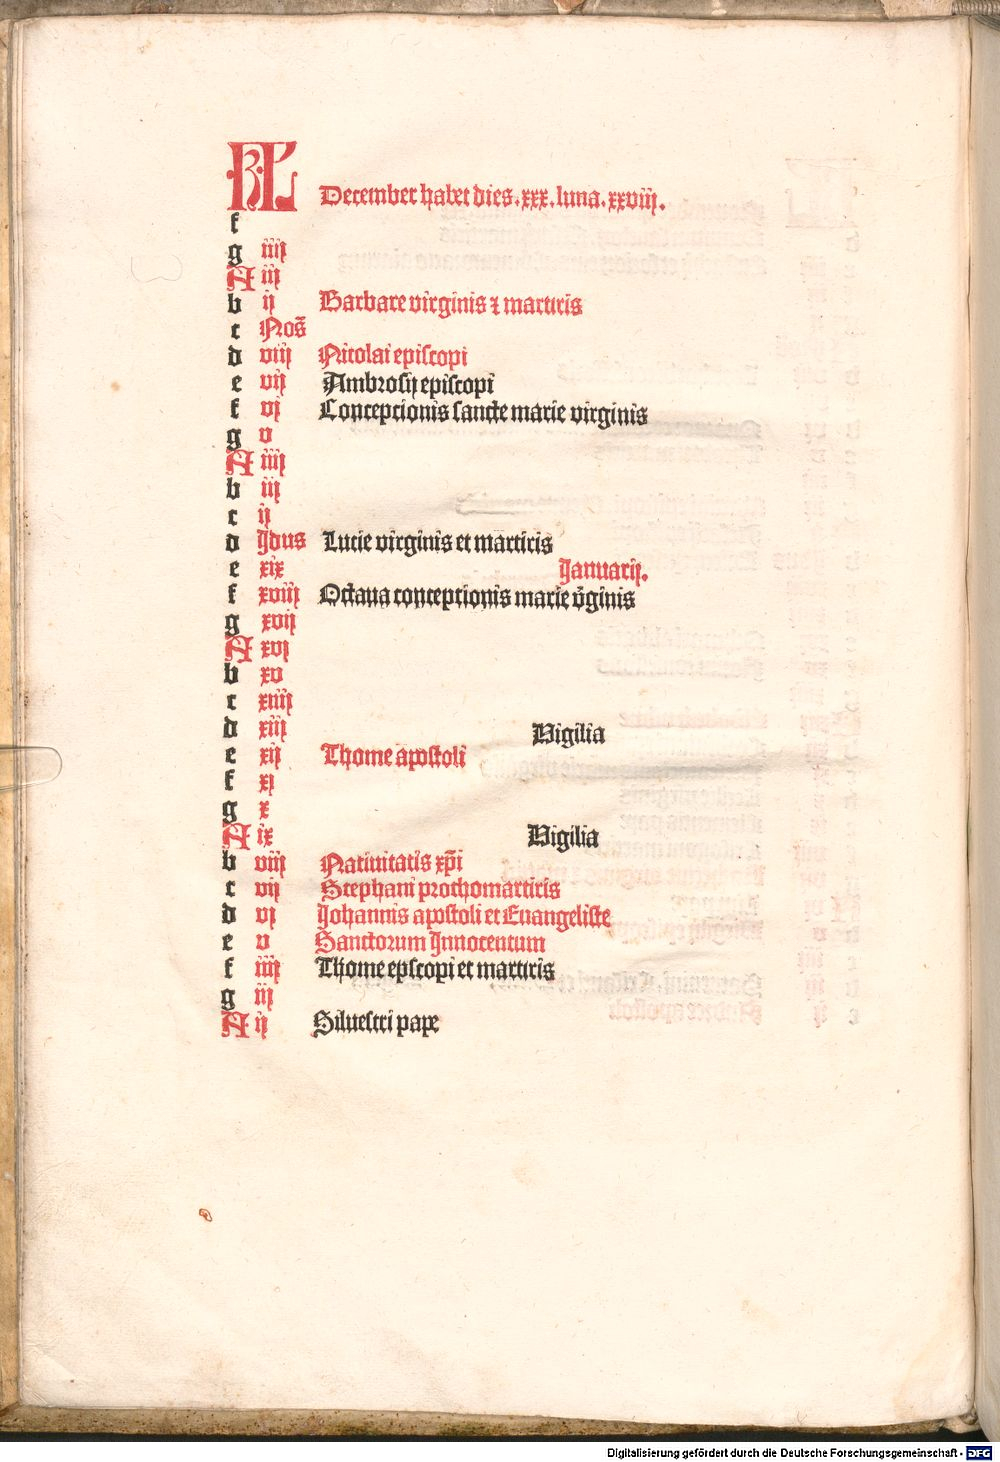 KL December habet dies.xxx.luna.xxviij.
f
g iiij
A iij
b ij Barbare virginis ⁊ martiris
c Nos̄
d viij Nicolai episcopi
e vij Ambrosij episcopi
f vj Conceptionis sancte marie virginis
g v
A iiij
b iij
c ij
d Jdus Lucie virginis et martiris
e xix Januarij.
f xviij Octaua conceptionis marie v̄ginis
g xvij
A xvj
b xv
c xiiij
d xiij Vigilia
e xij Thome apostoli
f xj
g x
A ix Vigilia
b viij Natiuitatis xp̄i
c vij Stephani prothomartiris
d vj Johannis apostoli et Euangeliste
e v Sanctorum Jnnocentum
f iiij Thome epscopi et martiris
g iij
A ij Siluestri pape
Digitalisierung gefördert durch die Deutsche Forschungsgemeinschaft - DFG